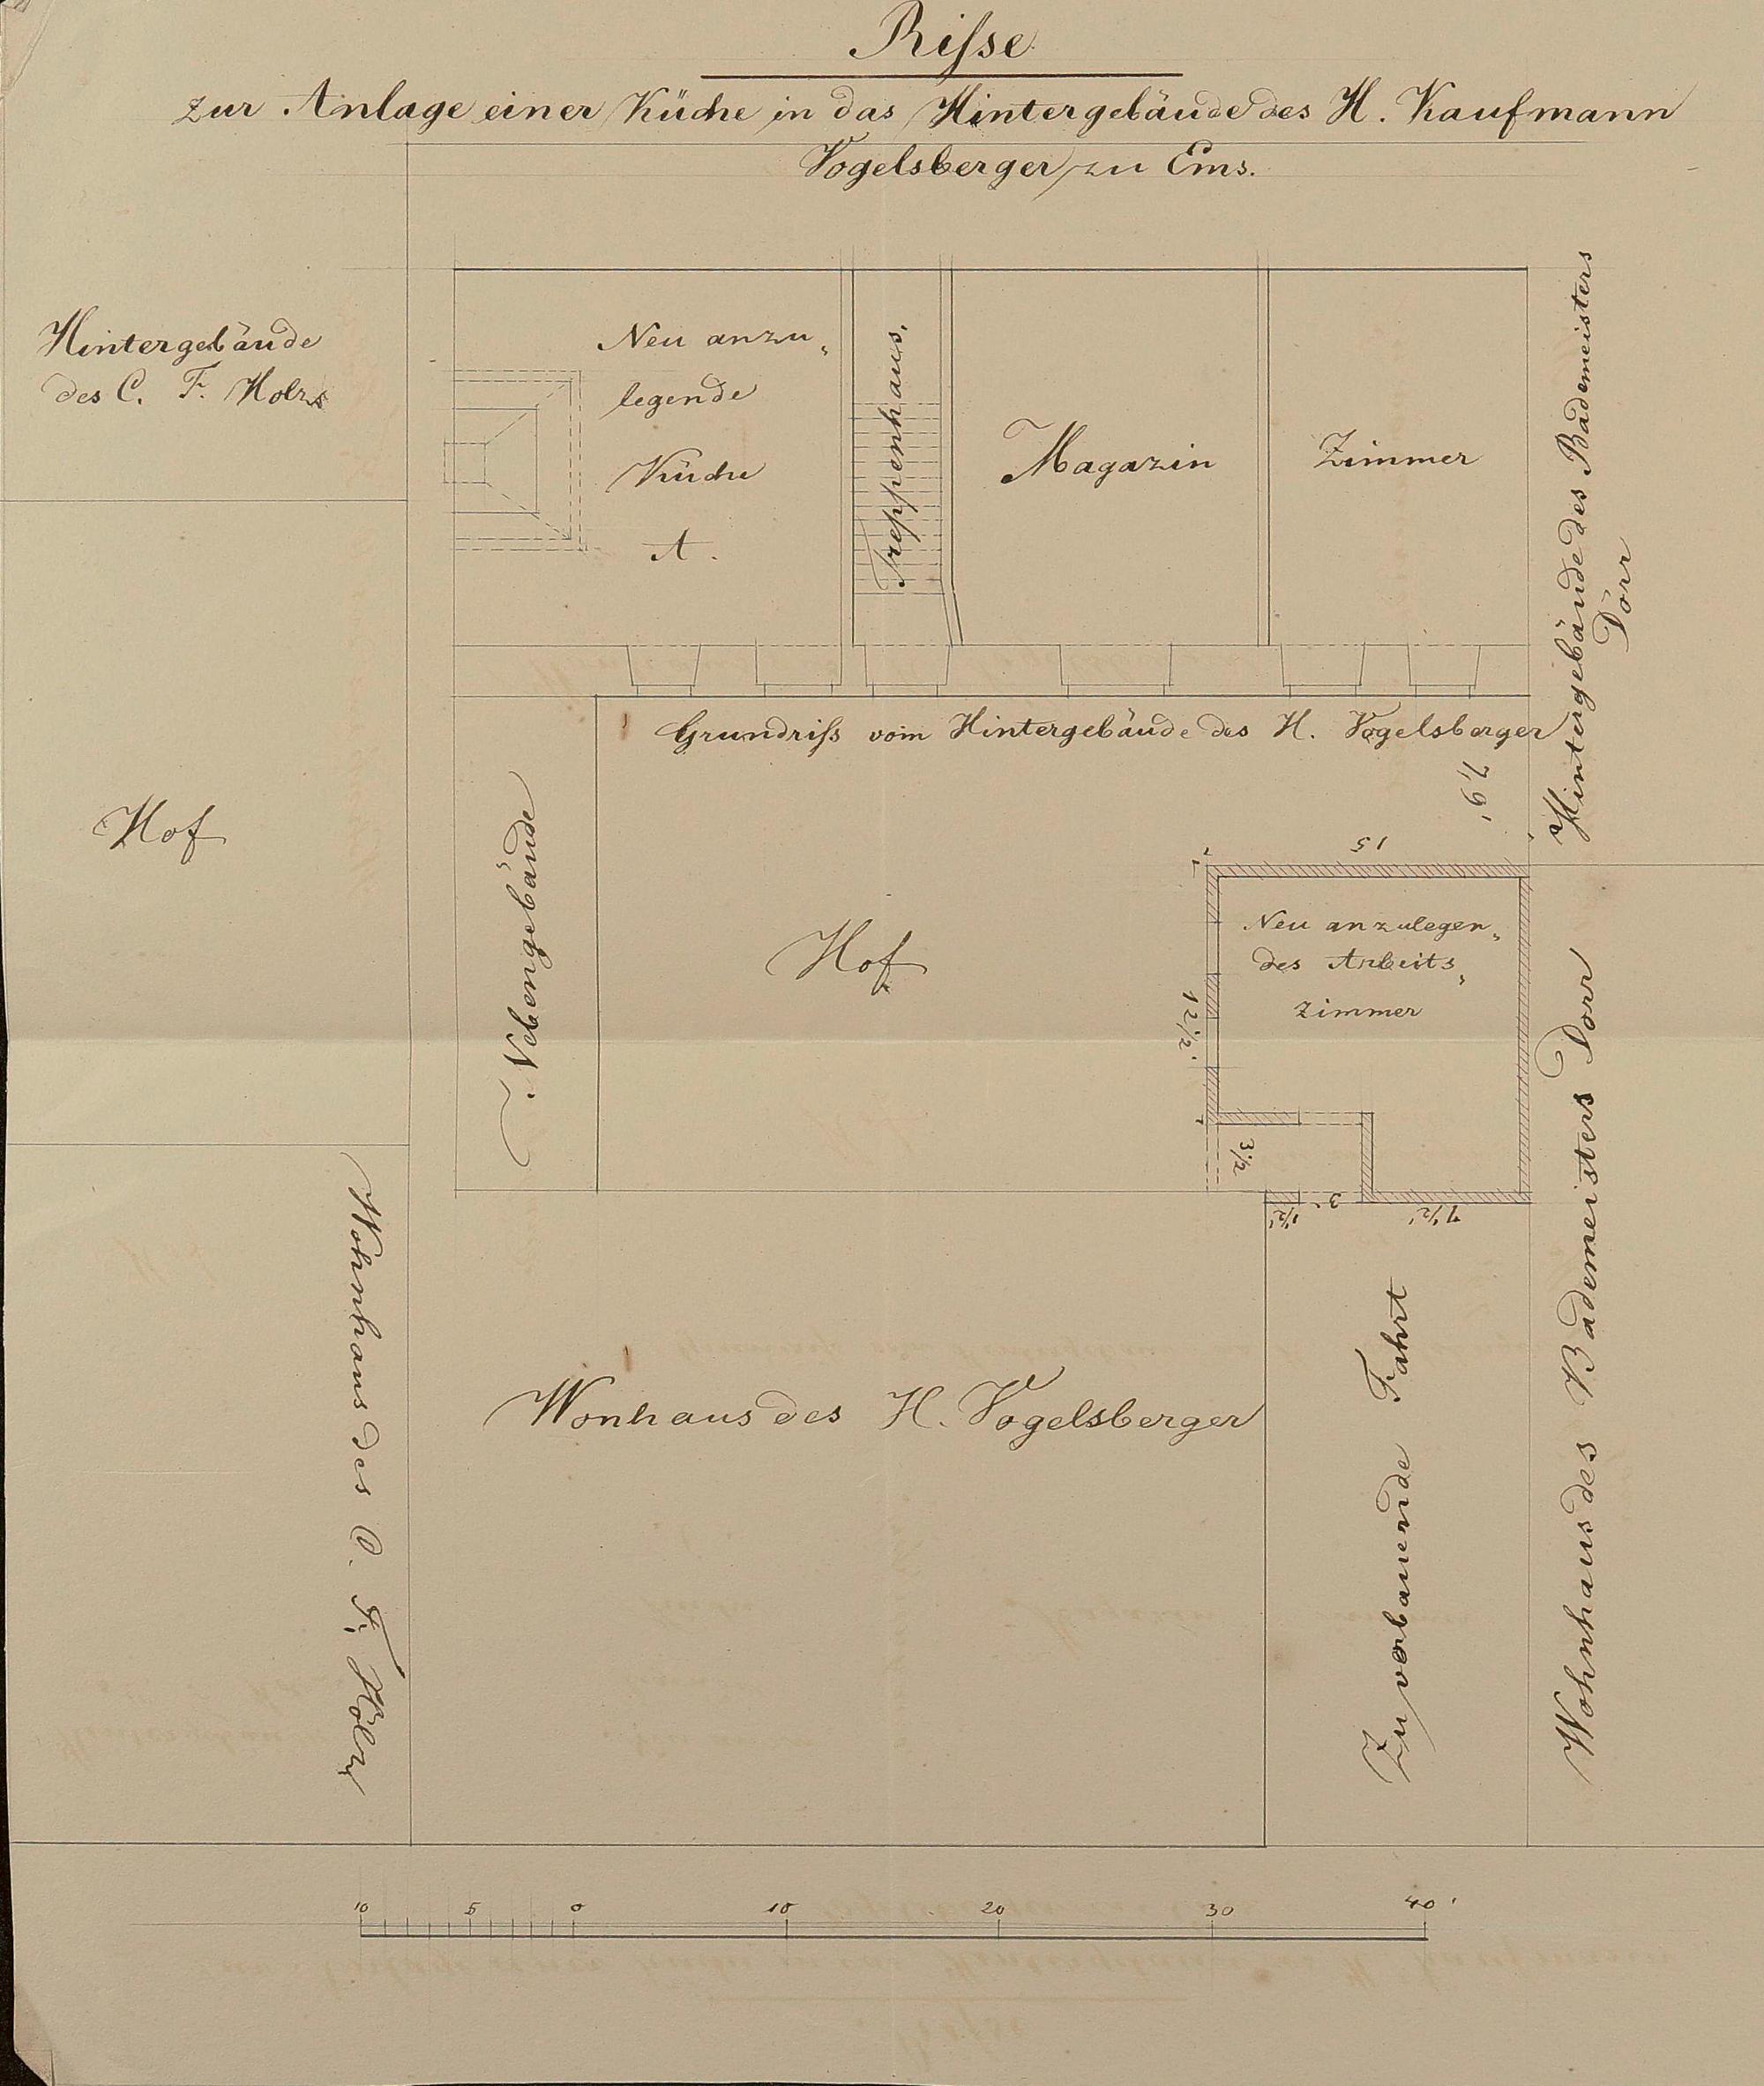 Risse
zur Anlage einer Küche in das Hintergebäude des H. Kaufmann
Vogelsberger zu Ems.
Hintergebäude
des C. F. Holz
Neu anzu„
legende
Küche
A.
Treppenhaus,
Magazin
Zimmer
Hintergebäude des Bademeisters
Dörr
Grundriss vom Hintergebäude des H. Vogelsberger
7,9'
Hof
Nebengebäude
Hof
15
Neu anzulegen„
des Arbeits„
zimmer
12 1/2'
3 1/2
1 1/2'
3'
7 1/2'
Wohnhaus des Bademeisters Dörr
Wohnhaus des C. F. Holz
Wonhaus des H. Vogelsberger
Zu verbauende Fahrt
10 5 0 10 20 30 40'